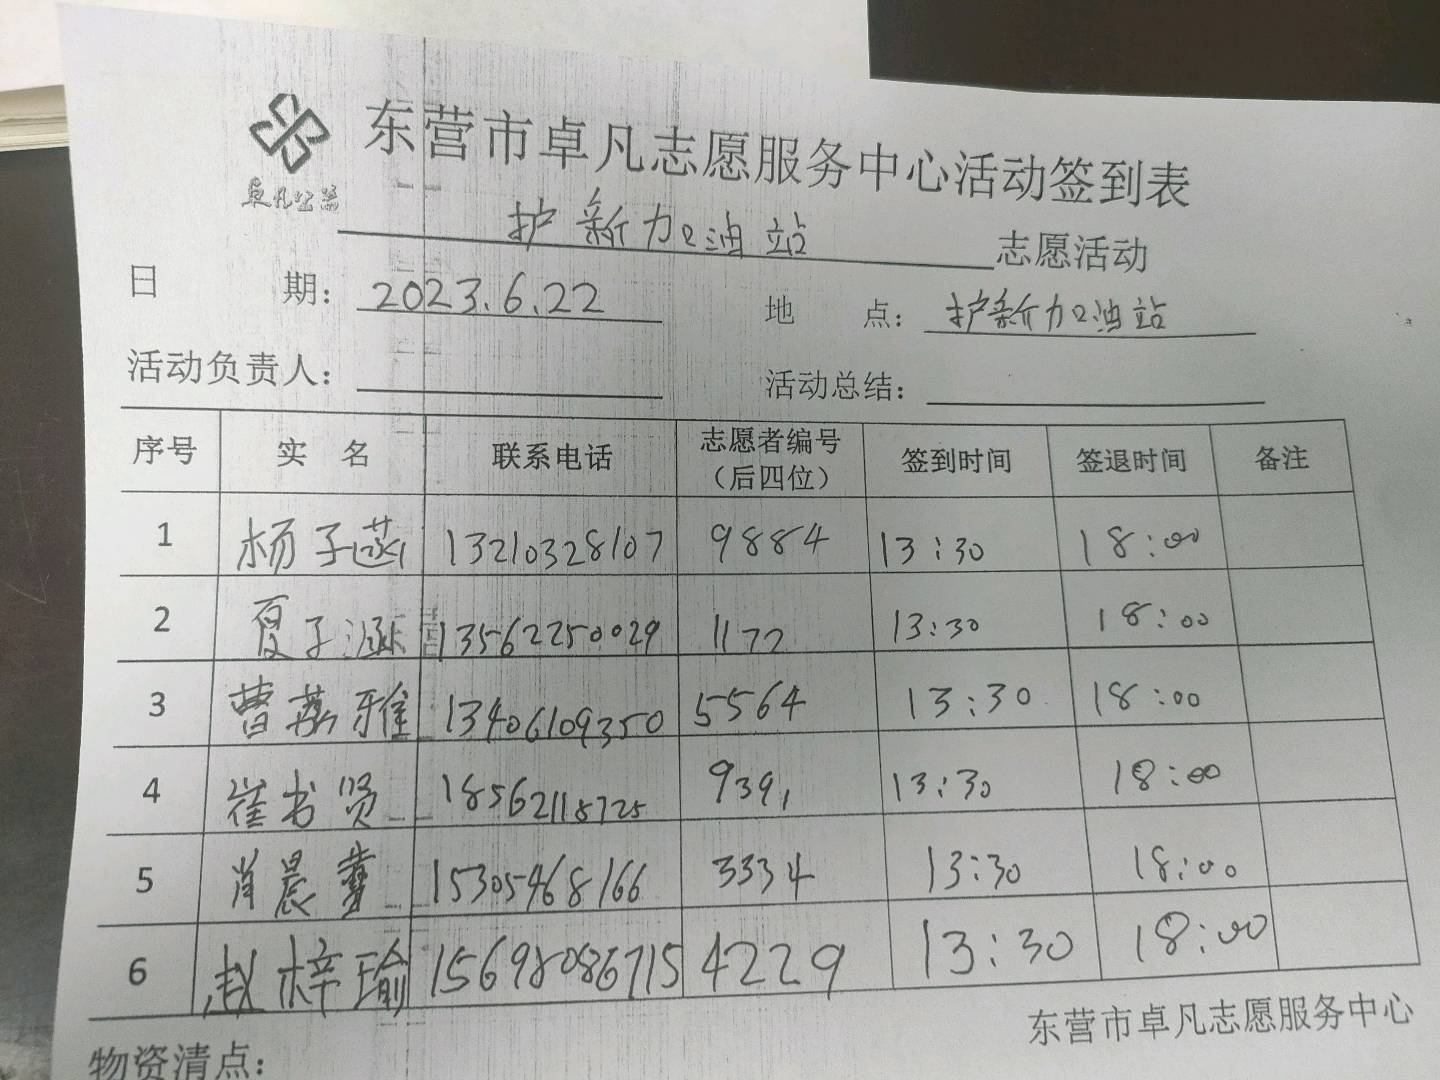 东营市卓凡志愿服务中心活动签到表
卓凡公益
护新加油站 志愿活动
日 期： 2023.6.22 地 点： 护新加油站
活动负责人： 活动总结：
序号 实 名 联系电话 志愿者编号（后四位） 签到时间 签退时间 备注
1 杨子涵 13210328107 9884 13:30 18:00
2 夏子涵 13562250029 1172 13:30 18:00
3 曹荔雅 13406109350 5564 13:30 18:00
4 崔书贤 18562118725 9391 13:30 18:00
5 肖晨 15305468166 3334 13:30 18:00
6 赵梓瑜 15698086715 4229 13:30 18:00
东营市卓凡志愿服务中心
物资清点：